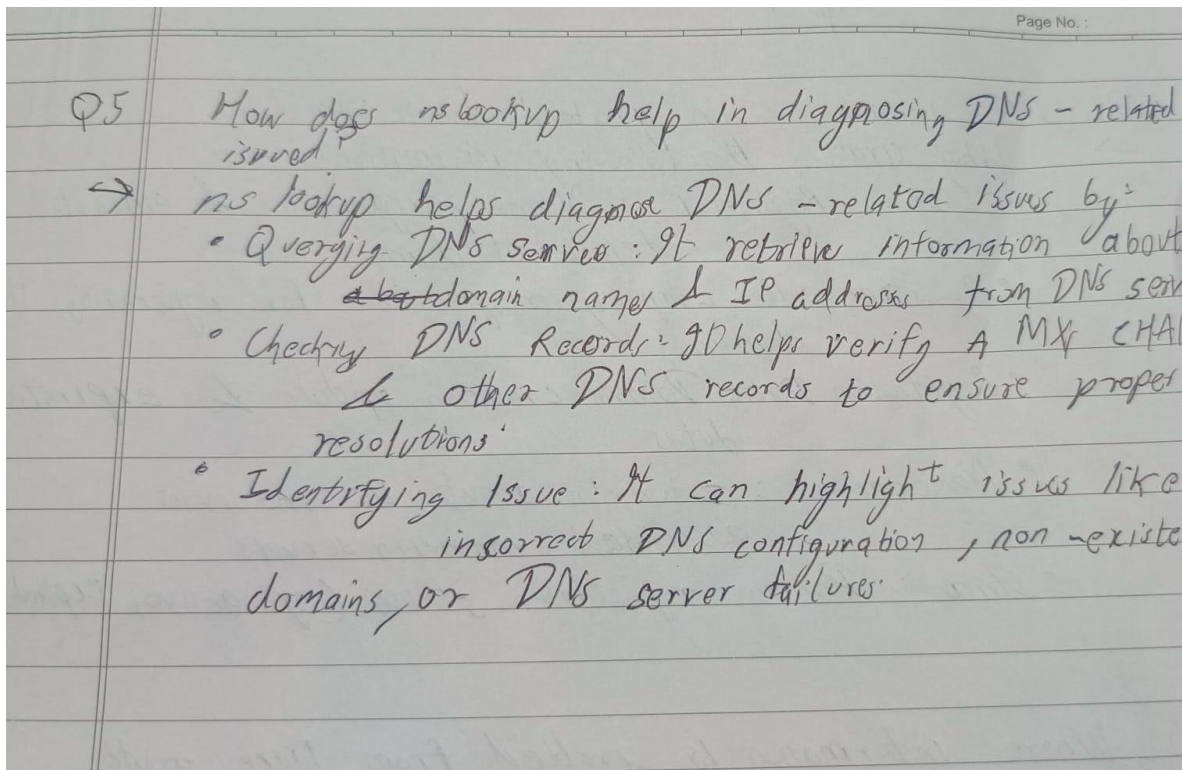 Page No. :
Q5 How does nslookup help in diagnosing DNS - related
issued?
→ ns lookup helps diagnose DNS - related issues by:
• Querying DNS Server : It retrieve information about
domain names & IP addresses from DNS serv
• Checking DNS Records : It helps verify A MX, CNA
& other DNS records to ensure proper
resolutions.
• Identifying Issue : It can highlight issues like
incorrect DNS configuration , non - existe
domains, or DNS server failures.